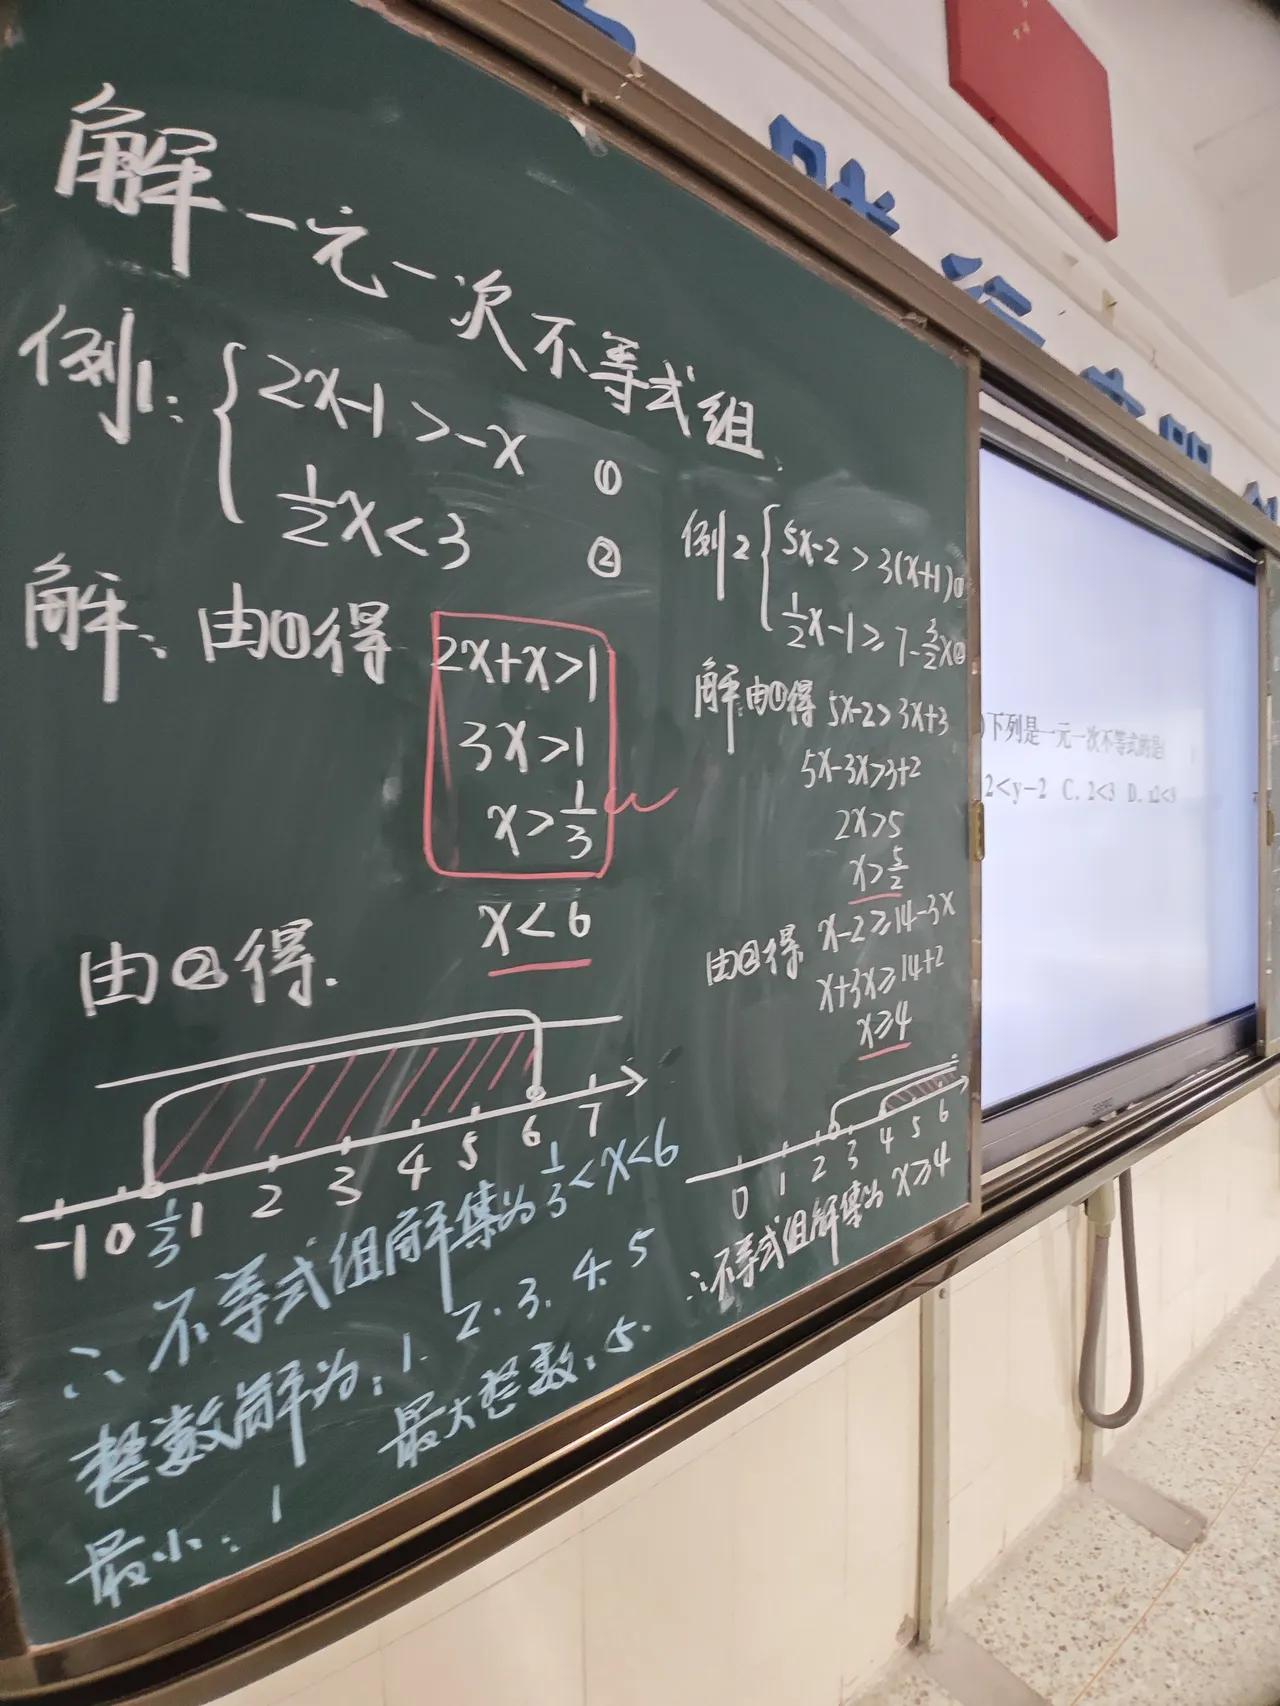 解一元一次不等式组.
例1: { 2x-1>-x ①
1/2x<3 ②
解、由①得 2x+x>1
3x>1
x>1/3
由②得. x<6
-1 0 1/3 1 2 3 4 5 6 7
∴不等式组解集为 1/3<x<6
整数解为:1. 2. 3. 4. 5
最大整数:5.
最小:1
例2 { 5x-2>3(x+1)①
1/2x-1≥7-3/2x②
解:由①得 5x-2>3x+3
5x-3x>3+2
2x>5
x>5/2
由②得 x-2≥14-3x
x+3x≥14+2
x≥4
0 1 2 3 4 5 6
∴不等式组解集为 x≥4
)下列是一元一次不等式的是(
2<y-2 C. 2<3 D. x2<9